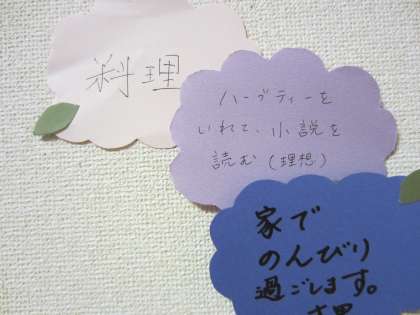 料理
ハーブティーを
いれて、小説を
読む(理想)
家で
のんびり
過ごします。